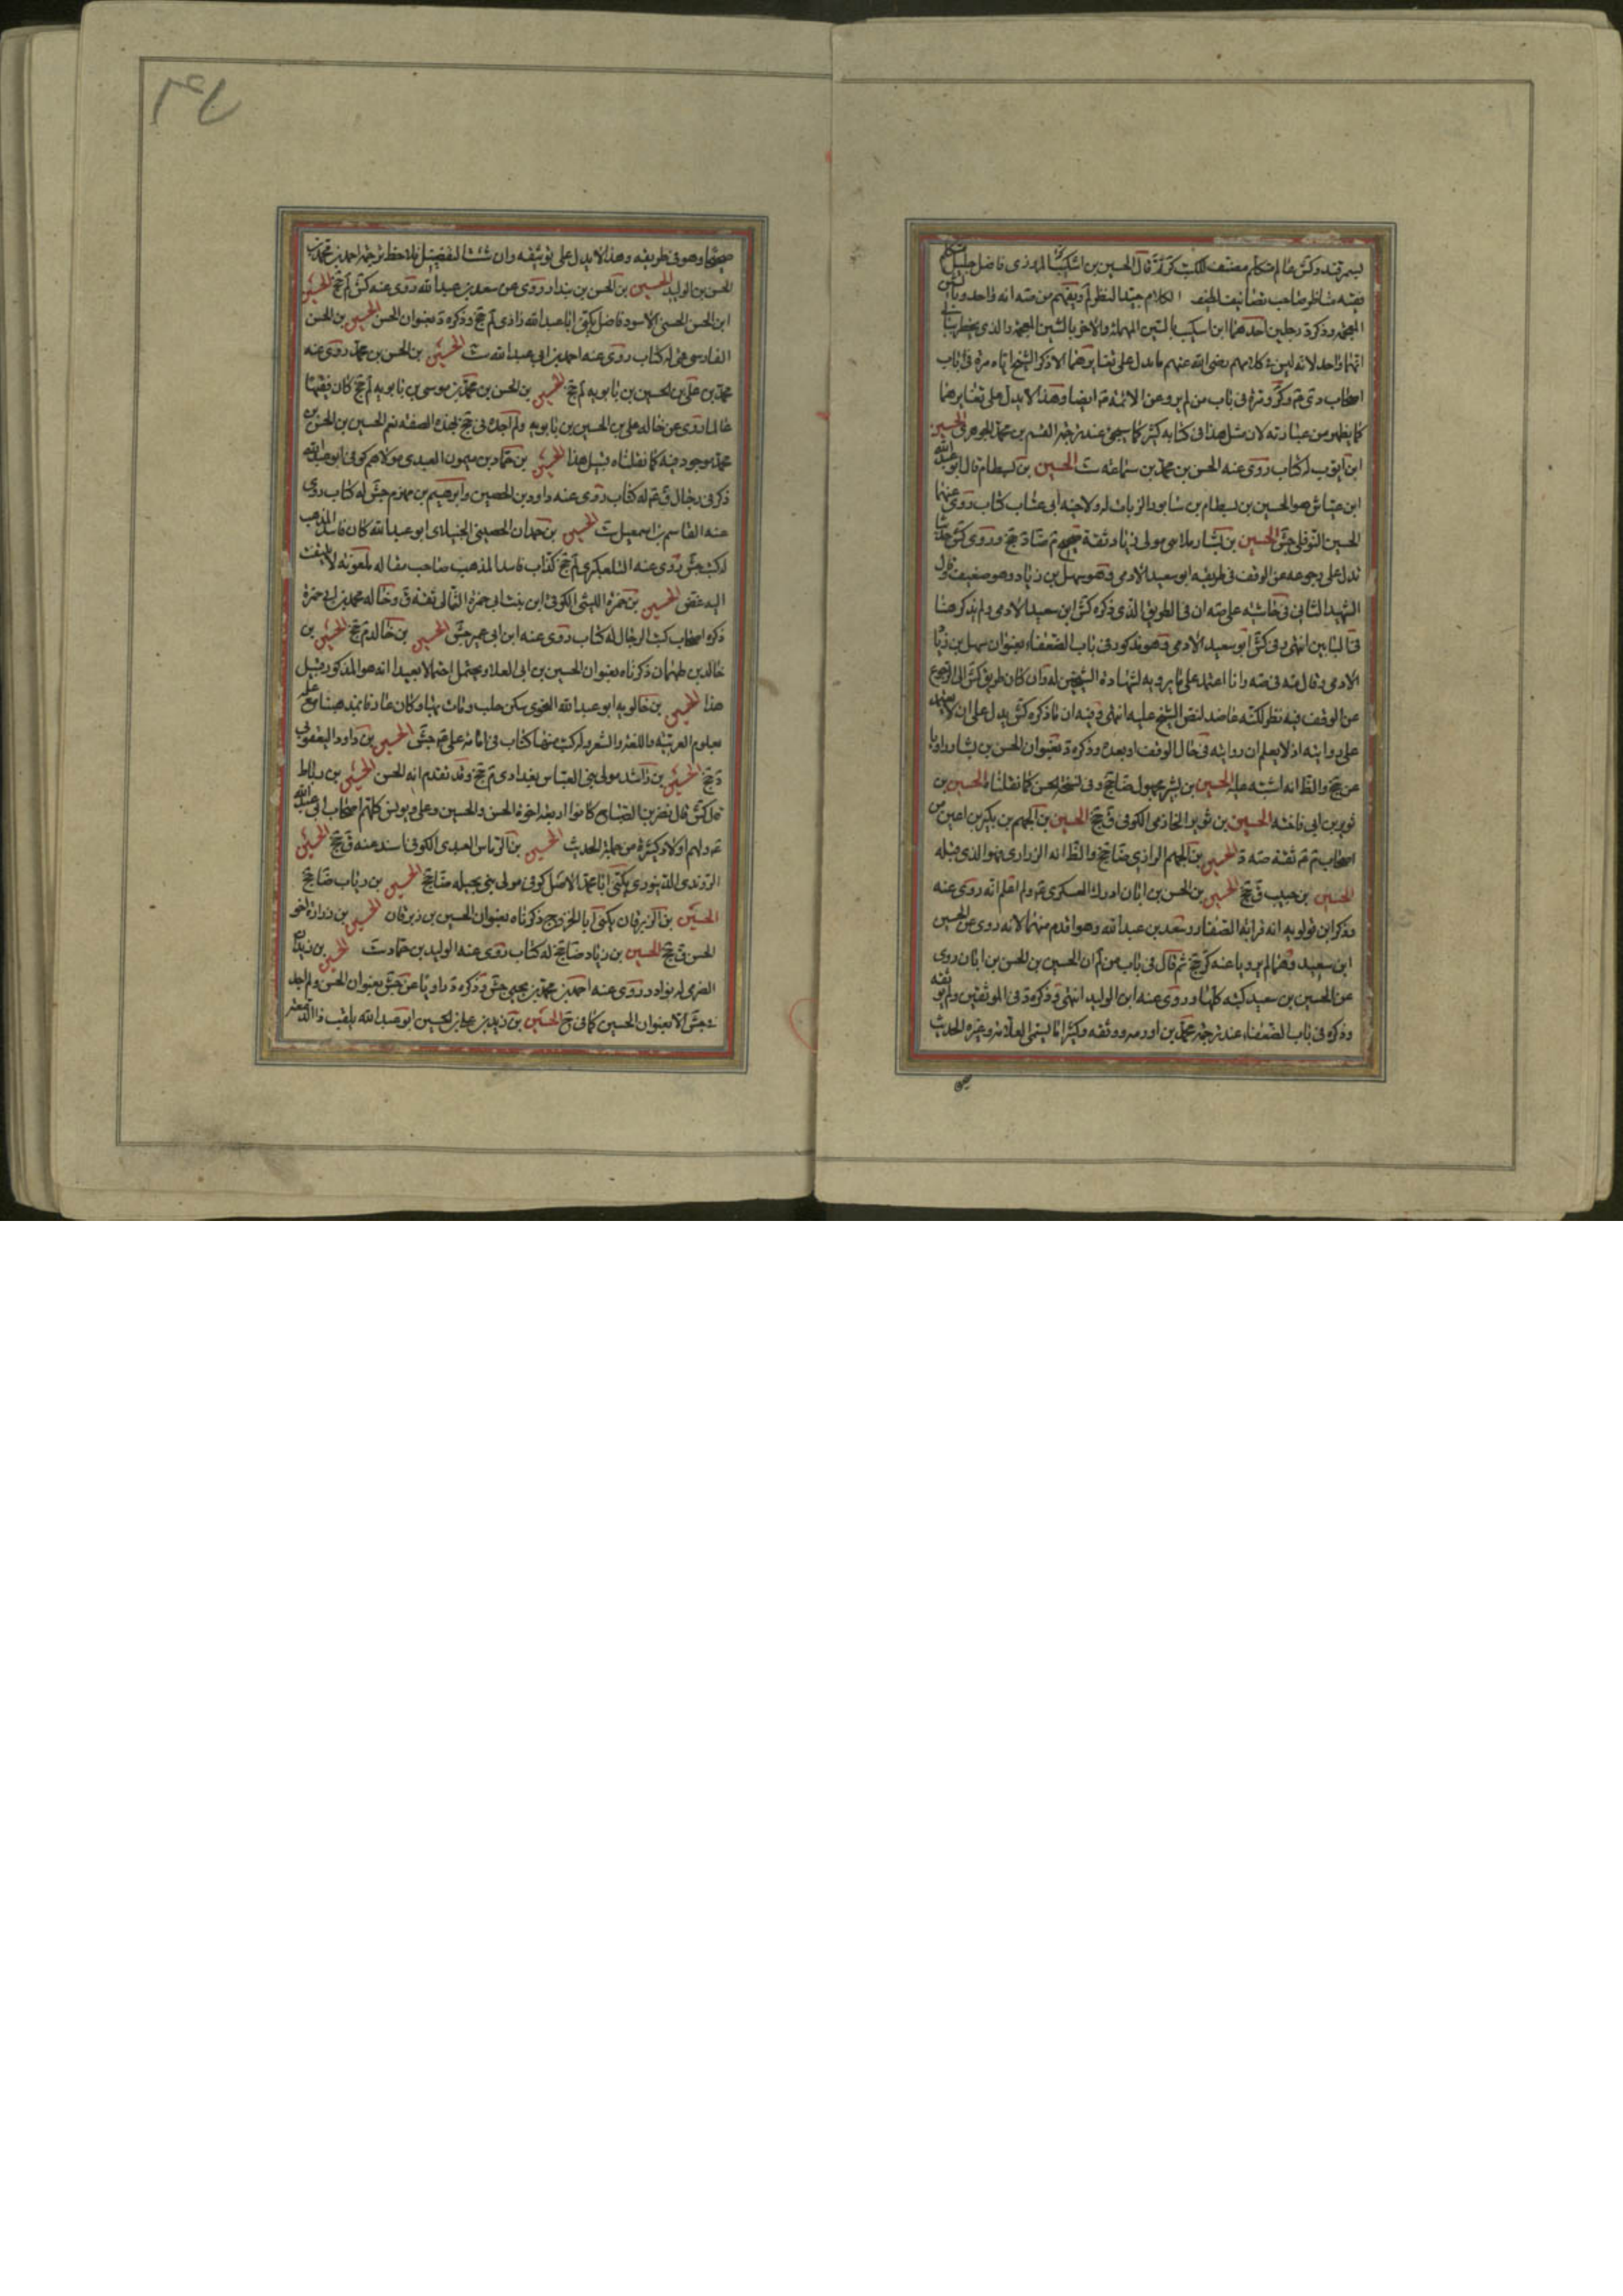 بسمرقند وكش عالم متكلم مصنف للكتب كر قال الحسين بن اشكيب المروزى فاضل جليل متكلم
فقيه مناظر صاحب تصانيف لطيف الكلام جيد النظر لم ويفهم من صه انه واحد وبالشين
المعجمة وذكر د رجلين احدهما ابن اسكيب بالسين المهملة والاخر بالشين المعجمة والذى يخطر ببالى
انهما واحد لانه ليس فى كلامهم رضى الله عنهم ما يدل على تغايرهما الا ذكر الشيخ اياه مرة فى باب
اصحاب دى وكر ومرة فى باب من لم يرو عن الائمة ايضا وهذا لا يدل على تغايرهما
كما يظهر من عبارته لان مثل هذا فى كتابه كثير كما سيجئ عند ترجمة القسم بن محمد الجوهرى الحسين
ابن ايوب له كتاب روى عنه الحسن بن محمد بن سماعة ست الحسين بن بسطام قال ابو عبد الله
ابن عياش هو الحسين بن بسطام بن سابور الزيات له ولاخيه ابى عتاب كتاب روى عنهما
الحسين النوفلى جش الحسين بن بشار مدائنى مولى زياد ثقة صحيح م ضا د جخ وروى كش حديثا
تدل على رجوعه عن الوقف فى طريقه ابو سعيد الادمى وهو سهل بن زياد وهو ضعيف وقال
الشهيد الثانى فى حاشيته على صه ان فى الطريق الذى ذكره كش ابن سعيد الادمى ولم يذكر هنا
فى البابين انتهى وفى كش ابو سعيد الادمى وهو مذكور فى باب الضعفاء بعنوان سهل بن زياد
الادمى وقال فى صه وانا اعتمد على ما يرويه لشهادة الشيخين له وان كان طريق كش الى الرجوع
عن الوقف فيه نظر لكنه عاضد لنص الشيخ عليه انتهى وفيه ان ما ذكره كش يدل على ان لا يعتمد
على روايته اذ لا يعلم ان روايته فى حال الوقف او بعده وذكره د بعنوان الحسن بن بشار راويا
عن جخ والظ انه اشتبه عليه الحسين بن بشر مجهول ضا جخ وفى نسخة لحسن كما نقلناه الحسين بن
ثوير بن ابى فاخته الحسين بن ثوير الخازمى الكوفى ق جخ الحسين بن الجهم بن بكير بن اعين من
اصحاب م ثقة صه د الحسين بن الجهم الرازى ضا جخ والظ انه الزرارى وهو الذى قبله
الحسين بن حبيب ق جخ الحسين بن الحسن بن ابان ادرك العسكرى ولم اعلم انه روى عنه
وذكر ابن قولويه انه قرابة الصفار وسعد بن عبد الله وهو اقدم منهما لانه روى عن الحسين
ابن سعيد وهما لم يرويا عنه كر جخ ثم قال فى باب من لم ان الحسين بن الحسن بن ابان روى
عن الحسين بن سعيد كتبه كلها وروى عنه ابن الوليد انتهى وذكره د فى الموثقين ولم يوثقه
وذكره فى باب الضعفاء عند ترجمة محمد بن اورمه ووثقه وكثيرا ما يسمى العلامة وغيره الحديث
صحيحا وهو فى طريقه وهذا لا يدل على توثيقه وان شئت التفصيل فلاحظ ترجمة احمد بن محمد بن
الحسن بن الوليد الحسين بن الحسن بن بندار روى عن سعد بن عبد الله روى عنه كش لم جخ الحسين
ابن الحسن الحسنى الاسود فاضل يكنى ابا عبد الله رازى لم جخ وذكره د بعنوان الحسن الحسين بن الحسن
الفارسى قمى له كتاب روى عنه احمد بن ابى عبد الله ست الحسين بن الحسن بن محمد روى عنه
محمد بن على بن الحسين بن بابويه لم جخ الحسين بن الحسن بن محمد بن موسى بن بابويه لم جخ كان فقيها
عالما روى عن خاله على بن الحسين بن بابويه ولم اجده فى جخ بهذه الصفة نعم الحسين بن الحسن بن
محمد موجود فيه كما نقلناه قبيل هذا الحسين بن حماد بن ميمون العبدى مولاهم كوفى ابو عبد الله
ذكر فى رجال ق له كتاب روى عنه داود بن الحصين وابرهيم بن مهزم جش له كتاب روى
عنه القاسم بن اسمعيل ست الحسين بن حمدان الحصينى الجنبلانى ابو عبد الله كان فاسد المذهب
له كتب جش روى عنه التلعكبرى لم جخ كذاب فاسد المذهب صاحب مقالة ملعونة لا يلتفت
اليه غض الحسين بن حمزة الليثى الكوفى ابن بنت ابى حمزة الثمالى ثقة ق وخاله محمد بن ابى حمزة
ذكره اصحاب كتب الرجال له كتاب روى عنه ابن ابى عمير جش الحسين بن خالد م جخ الحسين بن
خالد بن طهمان ذكرناه بعنوان الحسين بن ابى العلا ويحتمل احتمالا بعيدا انه هو المذكور قبيل
هذا الحسين بن خالويه ابو عبد الله النحوى سكن حلب ومات بها وكان عارفا بمذهبنا مع علمه
بعلوم العربية واللغة والشعر وله كتب منها كتاب فى امامة على جش الحسين بن داود اليعقوبى
د جخ الحسين بن راشد مولى بنى العباس بغدادى م جخ وقد تقدم انه الحسن الحسين بن رباط
قال كش قال نصر بن الصباح كانوا اربعة اخوة الحسن والحسين وعلى ويونس كلهم اصحاب ابى عبد الله
ولهم اولاد كثيرة من حملة الحديث الحسين بن الرماس العبدى الكوفى اسند عنه ق جخ الحسين
الروندى الدينورى يكنى ابا محمد الاصل كوفى مولى بنى بجيلة ضا جخ الحسين بن رئاب ضا جخ
الحسين بن الزبرقان يكنى ابا الخزرج ذكرناه بعنوان الحسن بن زبرقان الحسين بن زرارة اخو
الحسن ق جخ الحسين بن زياد ضا جخ له كتاب روى عنه الوليد بن حماد ست الحسين بن زيدان
الصرمى له نوادر روى عنه احمد بن محمد بن يحيى جش وذكره د راويا عن جش بعنوان الحسن ولم اجد
فى جش الا بعنوان الحسين كما فى جخ الحسين بن زيد بن على بن الحسين ابو عبد الله يلقب ذا الدمعة